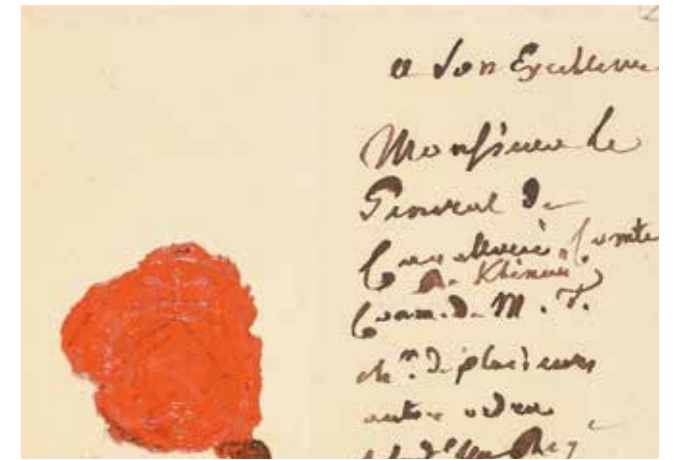 a Son Excellence
Monsieur le
General de
Cavallerie, Comte
de Klenau.
Com. d. M. T.
ch.r d. plusieurs
autre ordre